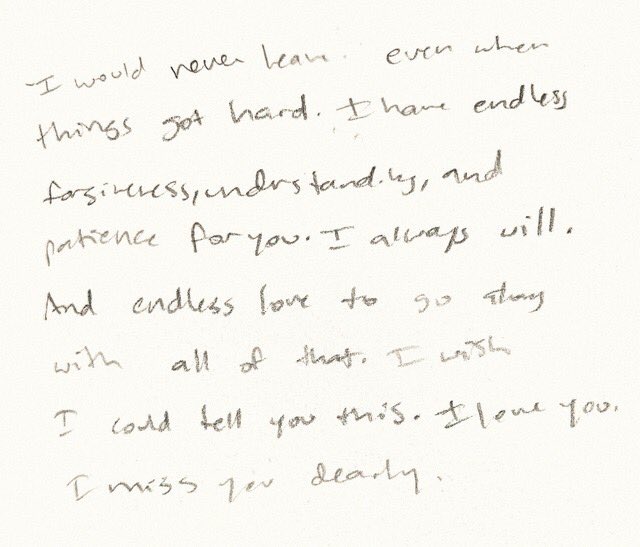 I would never leave. even when
things got hard. I have endless
forgiveness, understanding, and
patience for you. I always will.
And endless love to go
with all of that. I wish
I could tell you this. I love you.
I miss you dearly.